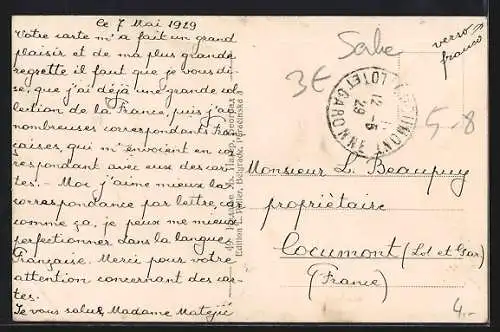 Ce 7 Mai 1929
Votre carte m'a fait un grand
plaisir et de ma plus grande
regrette il faut que je vous di-
se, que j'ai déjà une grande col-
lection de la France, puis j'ai
nombreuses correspondants Fran-
çaises, qui m'envoient en cor-
respondant avec eux des car-
tes. - Moi j'aime mieux la
correspondance par lettre, car
comme ça, je peux me mieux
perfectionner dans la langue
Française. Merci pour votre
attention concernant des car-
tes.
Je vous salue, Madame Matejić
Serbe
3€
verso
franco
COCUMONT
12 - 5
29
LOT ET GARONNE
5-8
Monsieur L. Beaupuy
propriétaire
Cocumont (Lot et Gar)
(France)
4.-